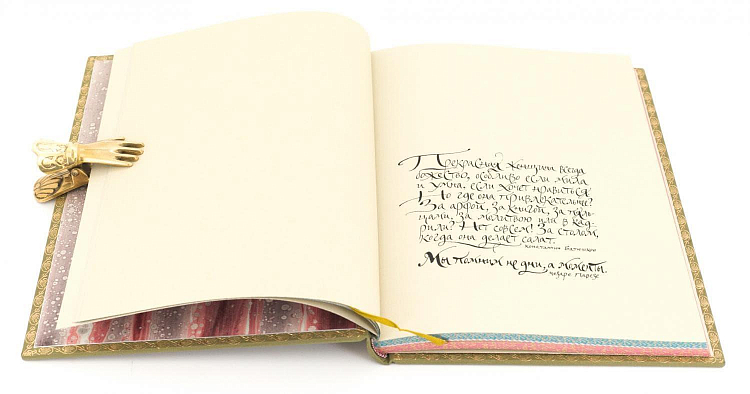 Прекрасная женщина всегда
божество, особливо если мила
и умна, если хочет нравиться.
Но где она привлекательнее?
За арфой, за книгой, за пяль-
цами, за молитвою или в кад-
рили? Нет совсем! За столом,
когда она делает салат.
Константин Батюшков
Мы помним не дни, а моменты.
Чезаре Павезе